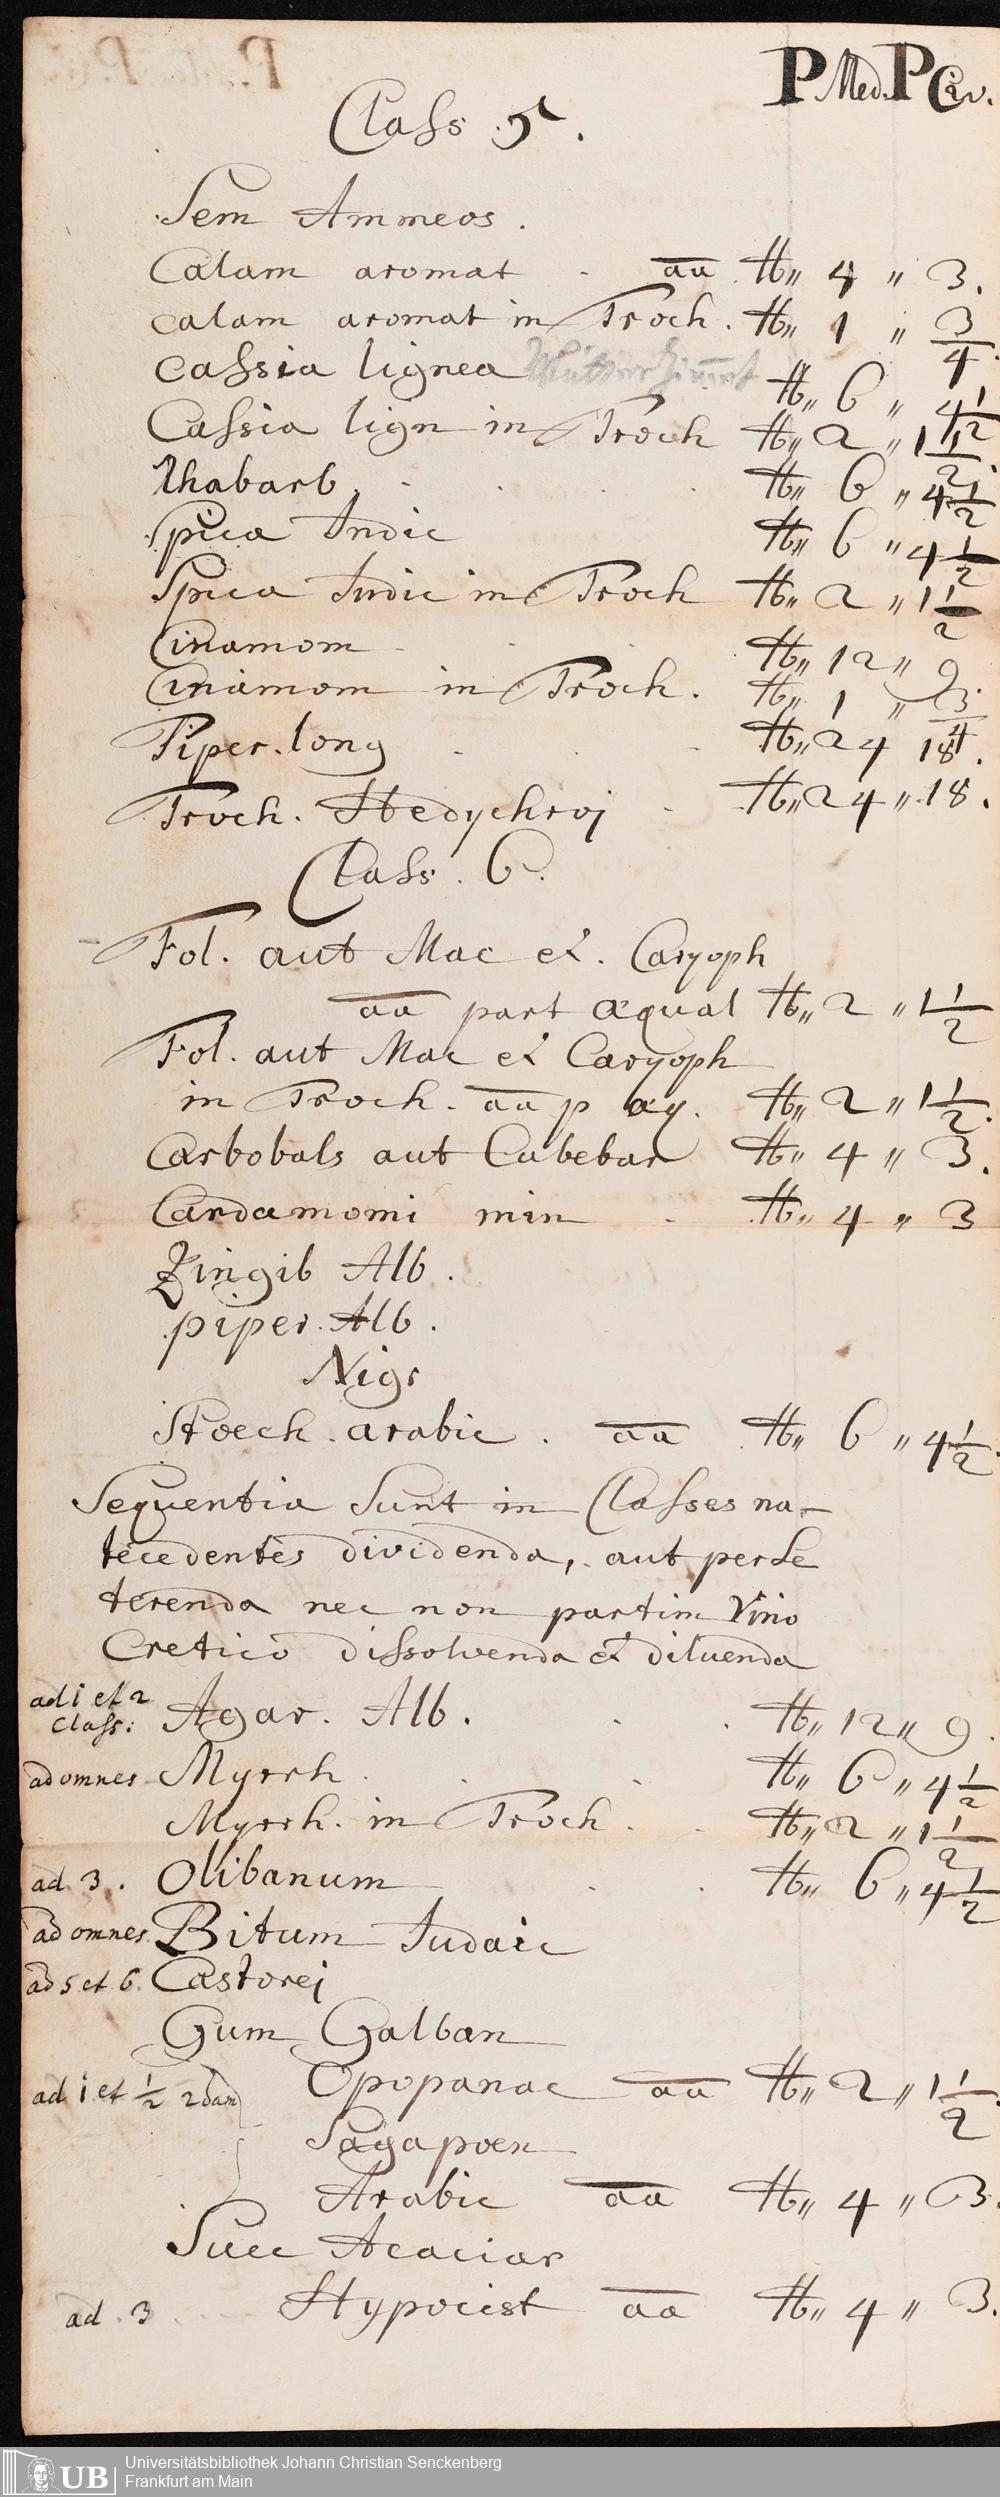 P Med. P Civ.
Class 5.
Sem Ammeos.
Calam aromat aa ℔ 4 " 3.
calam aromat in Troch. ℔ 1 " 3/4.
Cassia lignea ℔ 6 " 4 1/2
Cassia lign in Troch ℔ 2 " 1 1/2.
Rhabarb. ℔ 6 " 4 1/2
Spica Indic ℔ 6 " 4 1/2
Spica Indic in Troch ℔ 2 " 1 1/2
Cinamom ℔ 12 " 9.
Cinamom in Troch. ℔ 1 " 3/4
Piper. long ℔ 24 18.
Troch. Hedychroj ℔ 24 " 18.
Class. 6.
Fol. aut Mac et. Caryoph
aa part æqual ℔ 2 " 1 1/2
Fol. aut Mac et Caryoph
in Troch. aa p æq. ℔ 2 " 1 1/2.
Carbobals aut Cubebar ℔ 4 " 3.
Cardamomi min ℔ 4 " 3
Zingib Alb.
piper. Alb.
Nigr
Stoech. arabic. aa ℔ 6 " 4 1/2.
Sequentia sunt in Classes na-
tecedentes dividenda, aut perse
terenda nec non partim Vino
Cretico dissolvenda et diluenda
ad 1 et 2
Class: Agar. Alb. ℔ 12 " 9.
ad omnes Myrrh. ℔ 6 " 4 1/2
Myrrh. in Troch. ℔ 2 " 1 1/2
ad 3. Olibanum ℔ 6 " 4 1/2
ad omnes. Bitum Judaic
ad 5 et 6. Castorej
Gum Galban
ad 1 et 1/2 2dam Opopanac aa ℔ 2 " 1 1/2.
Sagapoen
Arabic aa ℔ 4 " 3.
Succ Acaciar
ad. 3 Hypocist aa ℔ 4 " 3.
UB Universitätsbibliothek Johann Christian Senckenberg
Frankfurt am Main